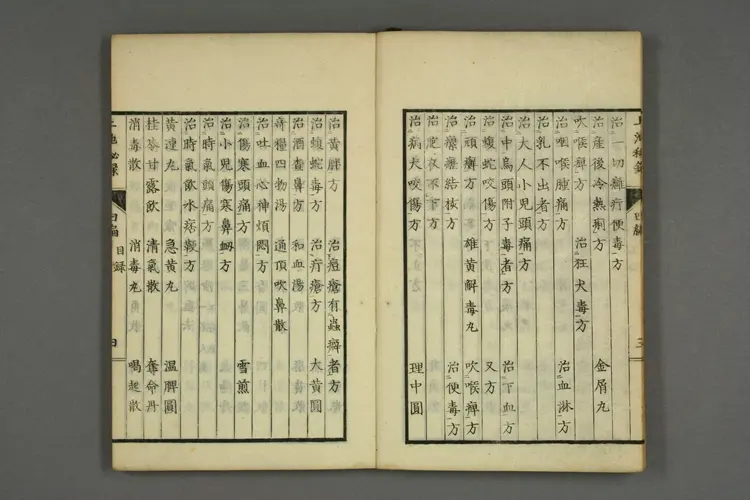 上池秘録 四編 三
治一切癰疔便毒方
治産後冷熱痢方 金屑丸
吹喉痺方 治狂犬毒方
治咽喉腫痛方 治血淋方
治乳不出者方
治大人小兒頭痛方
治中烏頭附子毒者方 治下血方
治蝮蛇咬傷方 又方
治頑癬方 雄黄解毒丸 吹喉痺方
治瘰癧結核方 治便毒方
治 不下方
治病犬咬傷方 理中圓
治黄胖方 治痘瘡有蟲癖者方
治蝮蛇毒方 治疔瘡方 大黄圓
治酒査鼻方 和血湯
奇糧四物湯 通頂吹鼻散
治吐血心神煩悶方
治傷寒頭痛方 雪煎
治小兒傷寒鼻衂方
治時氣頭痛方
治時氣飲水 方
黄連丸 急黄丸 温脾圓
桂苓甘露飲 清氣散 奪命丹
消毒散 消毒丸 喝起散
上池秘録 四編 目録 四